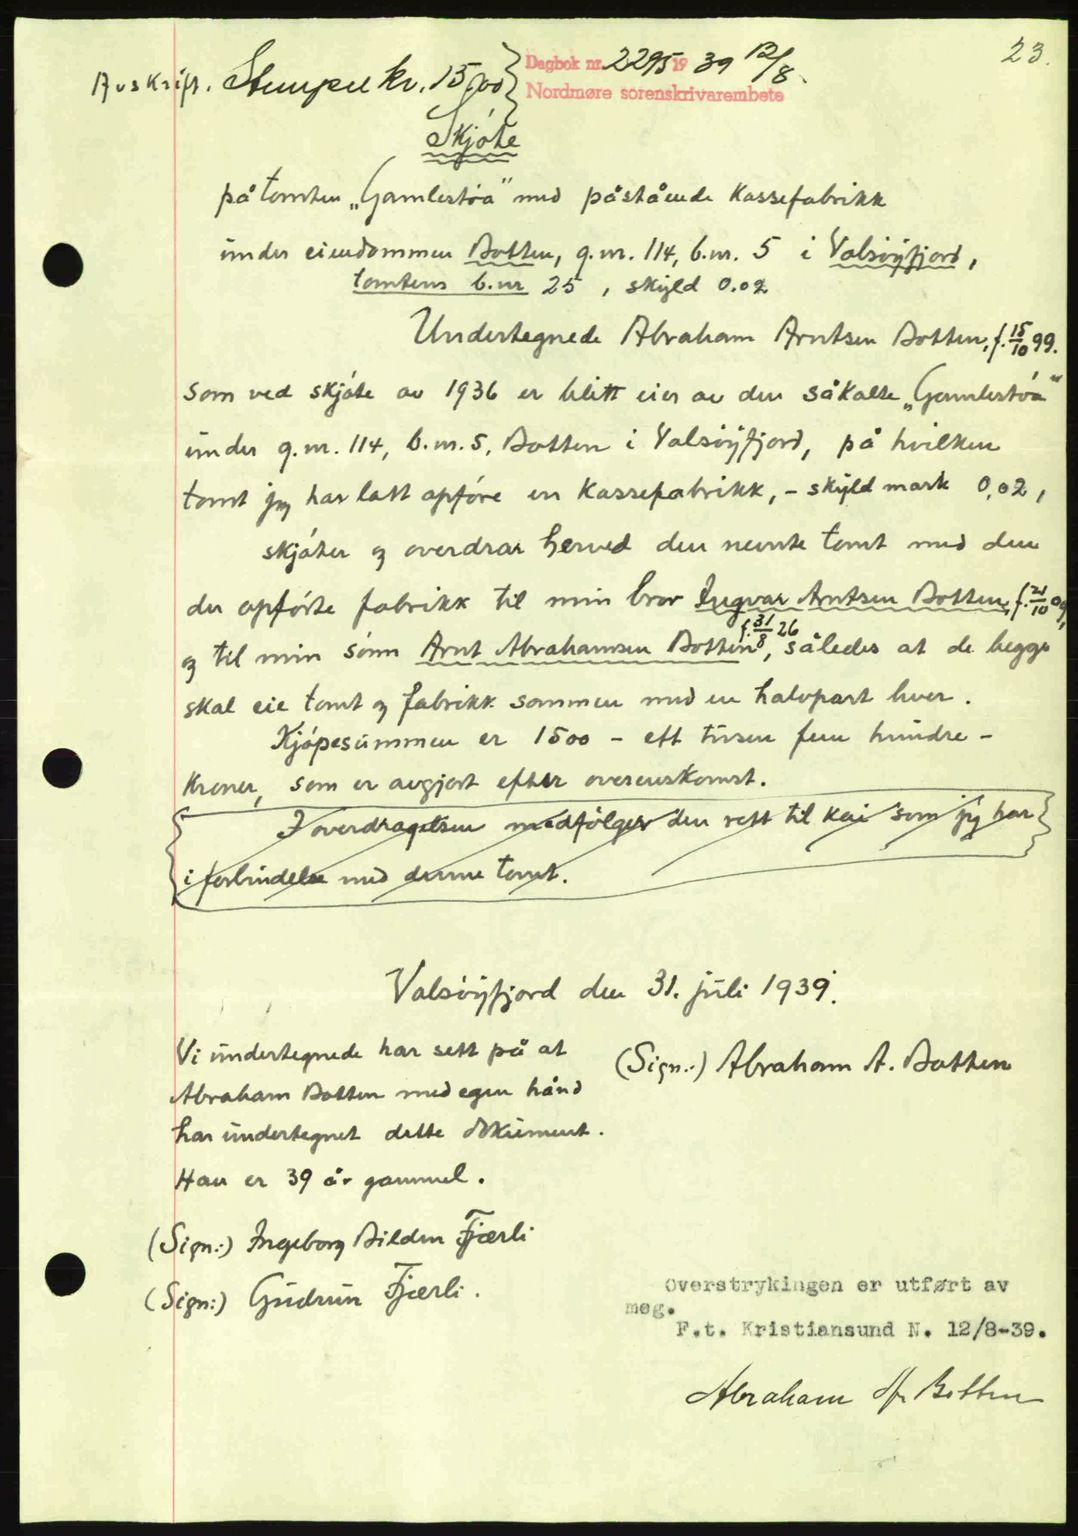 23.
Avskrift. Stempel kr. 15,00
Dagbok nr. 2295 1939 12/8
Nordmøre sorenskrivarembete
Skjöte
på tomten „Gamlestöa" med påstående kassefabrikk
under eiendommen Botten, g.nr. 114, b.nr. 5 i Valsöyfjord,
tomtens b.nr 25, skyld 0.02
Undertegnede Abraham Arntsen Botten, f. 15/10 99.
som ved skjöte av 1936 er blitt eier av den såkalte „Gamlestöa"
under g.nr. 114, b.nr. 5, Botten i Valsöyfjord, på hvilken
tomt jeg har latt opföre en kassefabrikk, - skyld mark 0,02,
skjöter og overdrar herved den nevnte tomt med den
der opförte fabrikk til min bror Ingvar Arntsen Botten, f. 21/10 09,
og til min sönn Arnt Abrahamsen Botten f. 31/8 26, således at de begge
skal eie tomt og fabrikk sammen med en halvpart hver.
Kjöpesummen er 1500 - ett tusen fem hundre -
kroner, som er avgjort efter overenskomst.
I overdragelsen medfölger den rett til kai som jeg har
i forbindelse med denne tomt.
Valsöyfjord den 31. juli 1939.
Vi undertegnede har sett på at
Abraham Botten med egen hånd
har undertegnet dette dokument.
Han er 39 år gammel.
(Sign.:) Abraham A. Botten
(Sign:) Ingeborg Bilden Fjærli
(Sign:) Gudrun Fjærli.
Overstrykingen er utført av
meg.
F.t. Kristiansund N. 12/8-39.
Abraham Botten